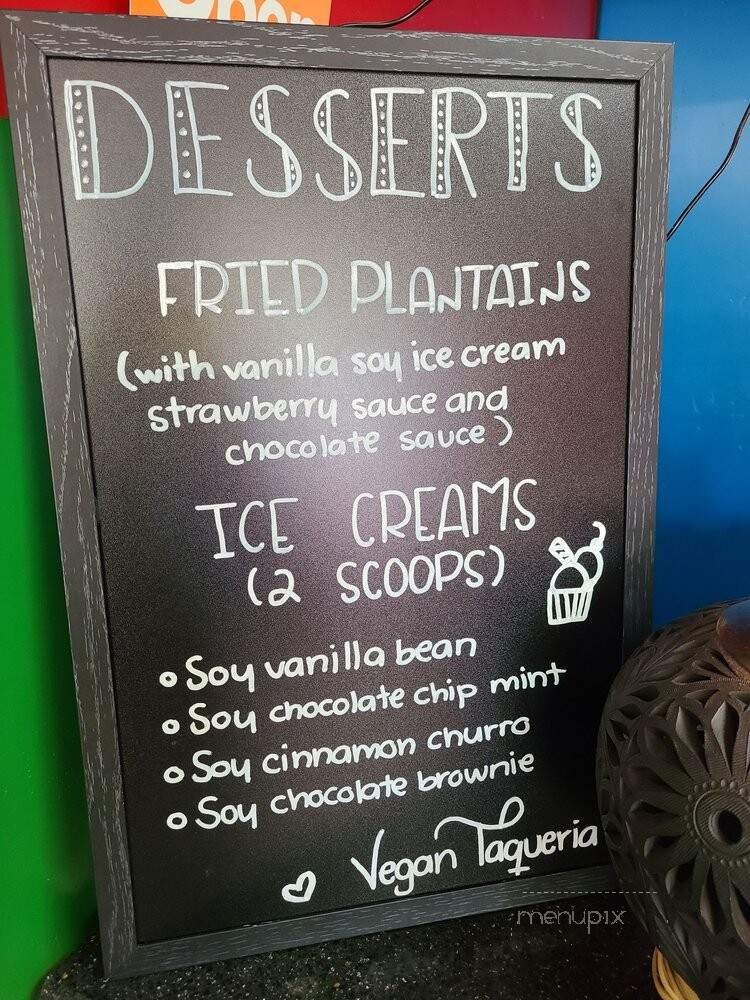 Open
DESSERTS
FRIED PLANTAINS
(with vanilla soy ice cream
strawberry sauce and
chocolate sauce)
ICE CREAMS
(2 SCOOPS)
Soy vanilla bean
Soy chocolate chip mint
Soy cinnamon churro
Soy chocolate brownie
Vegan Taqueria
menupix